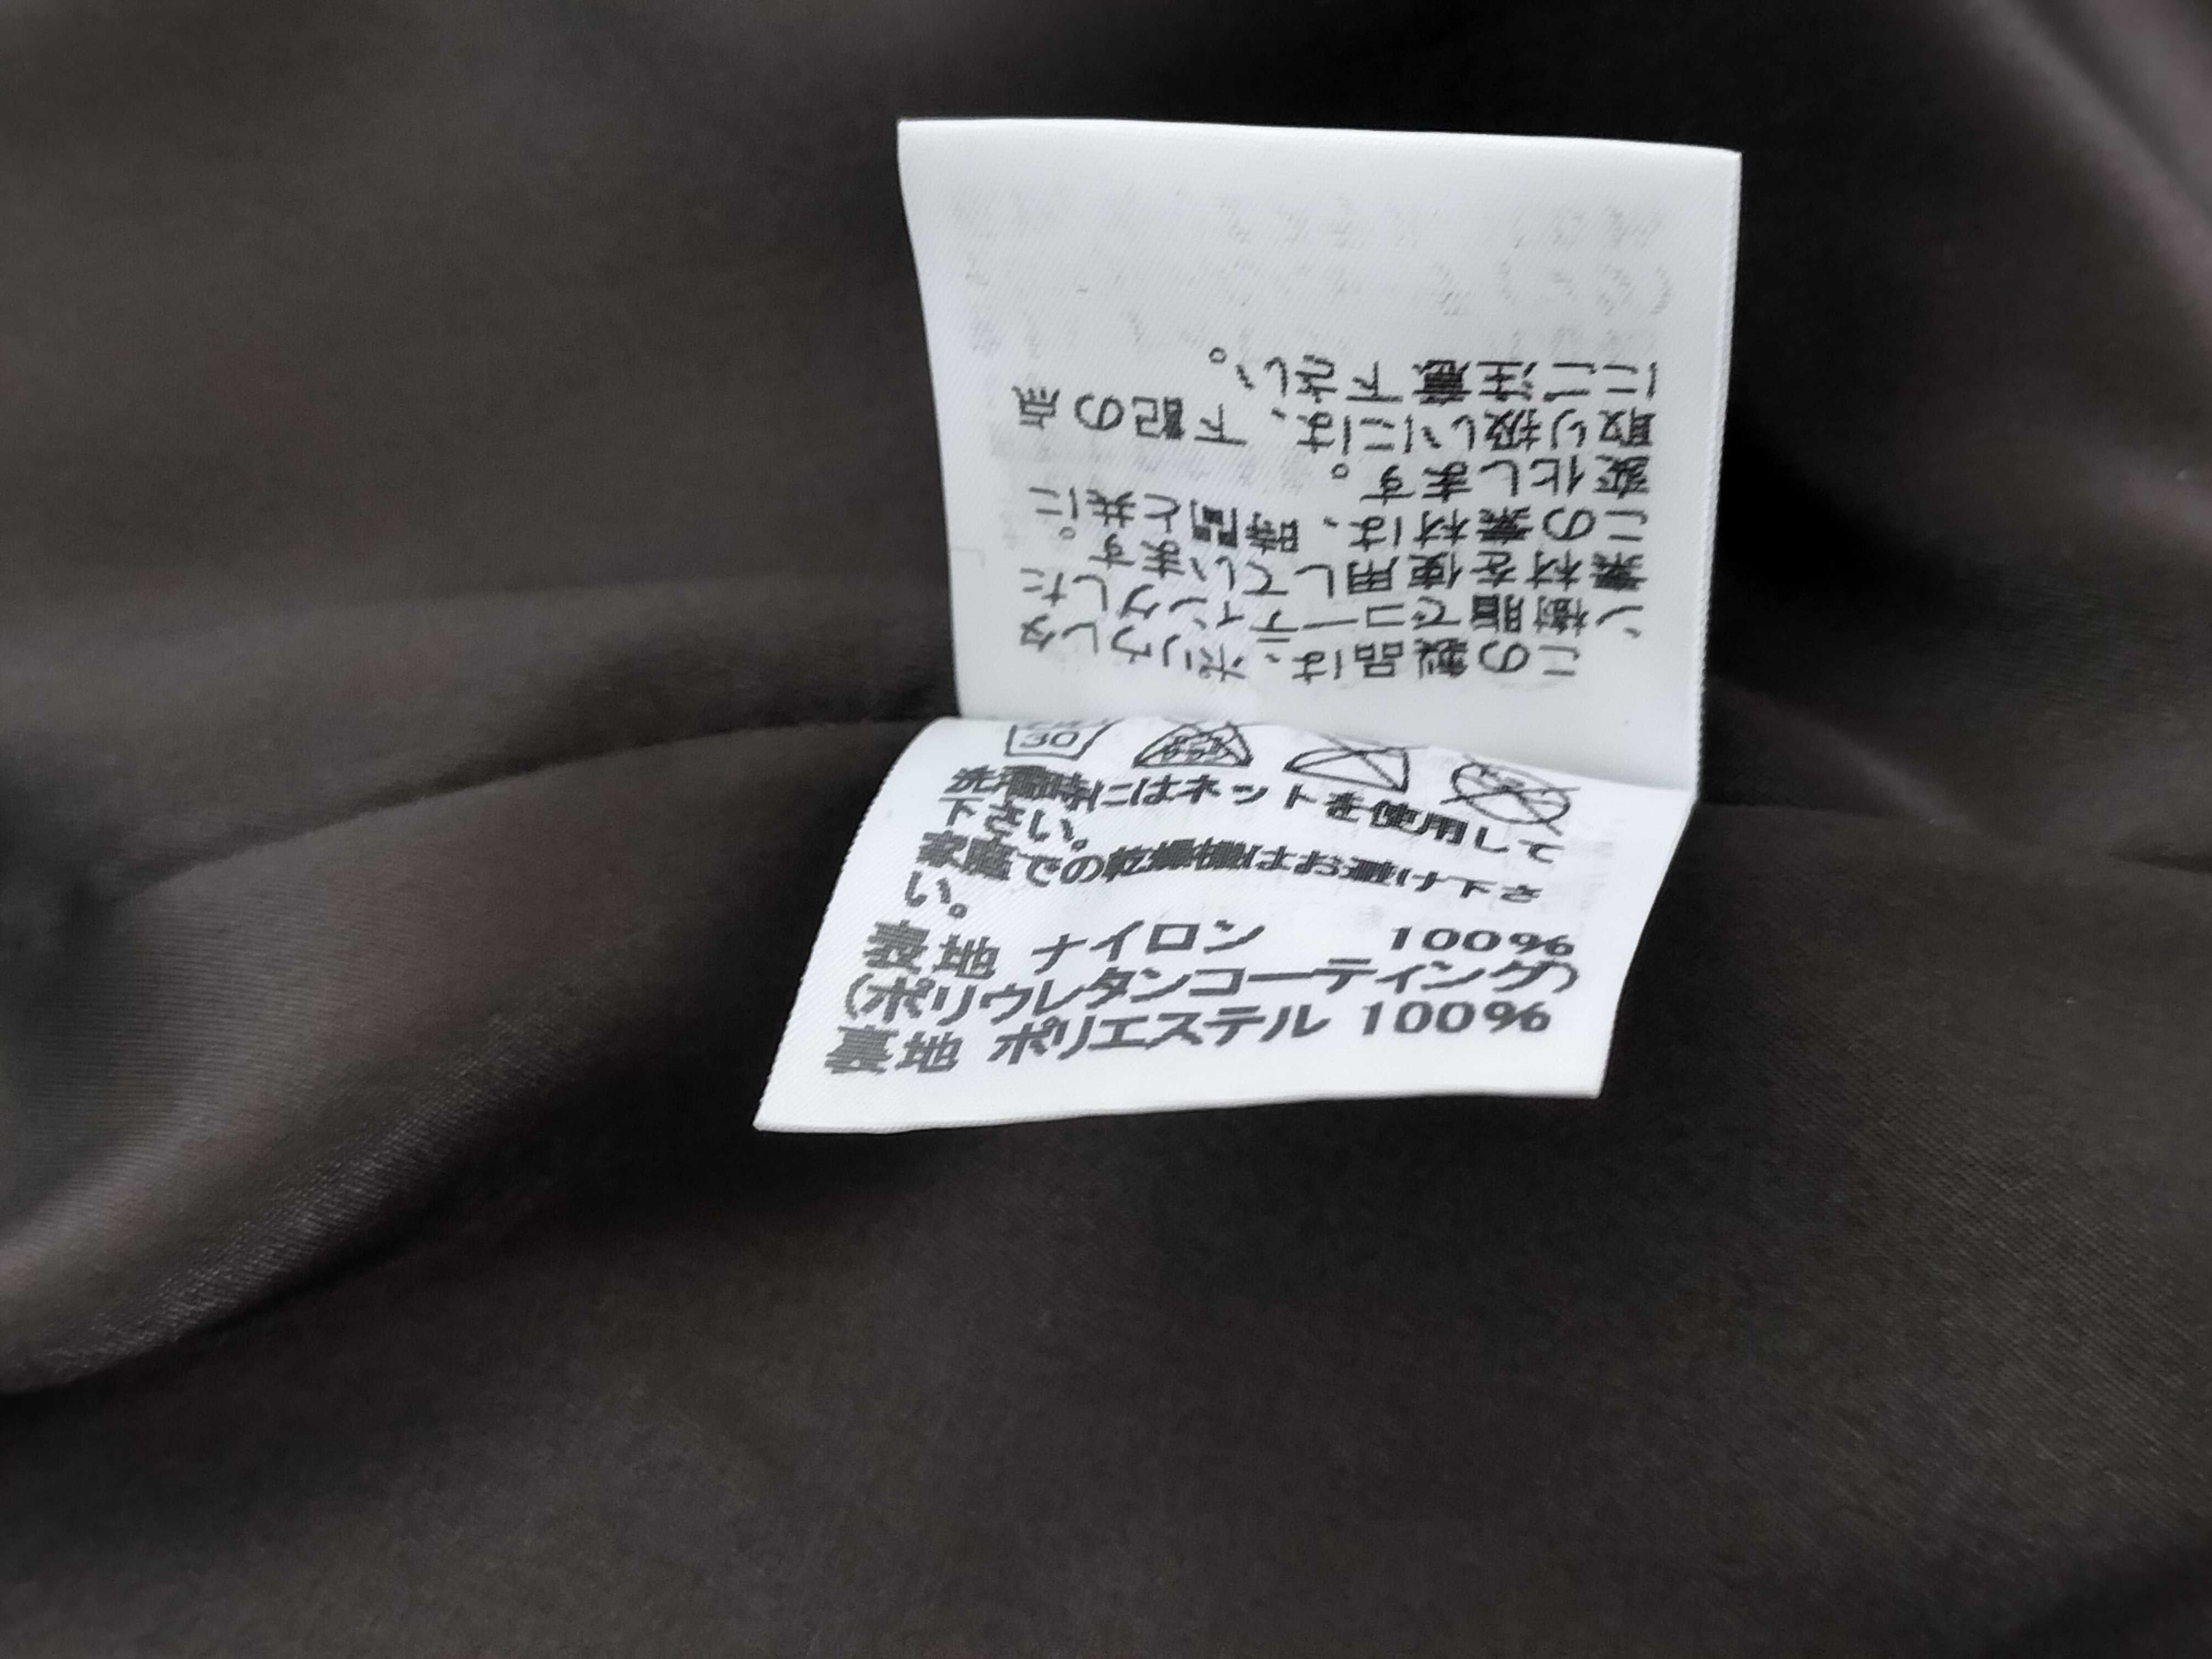 この製品は、ポリウレタ
ン樹脂でコーティングした
素材を使用しています。
この素材は、時間と共に
変化します。
取り扱いには、下記の点
にご注意下さい。
30
洗濯時にはネットを使用して
下さい。
家庭での乾燥機はお避け下さ
い。
表地 ナイロン 100%
(ポリウレタンコーティング)
裏地 ポリエステル 100%